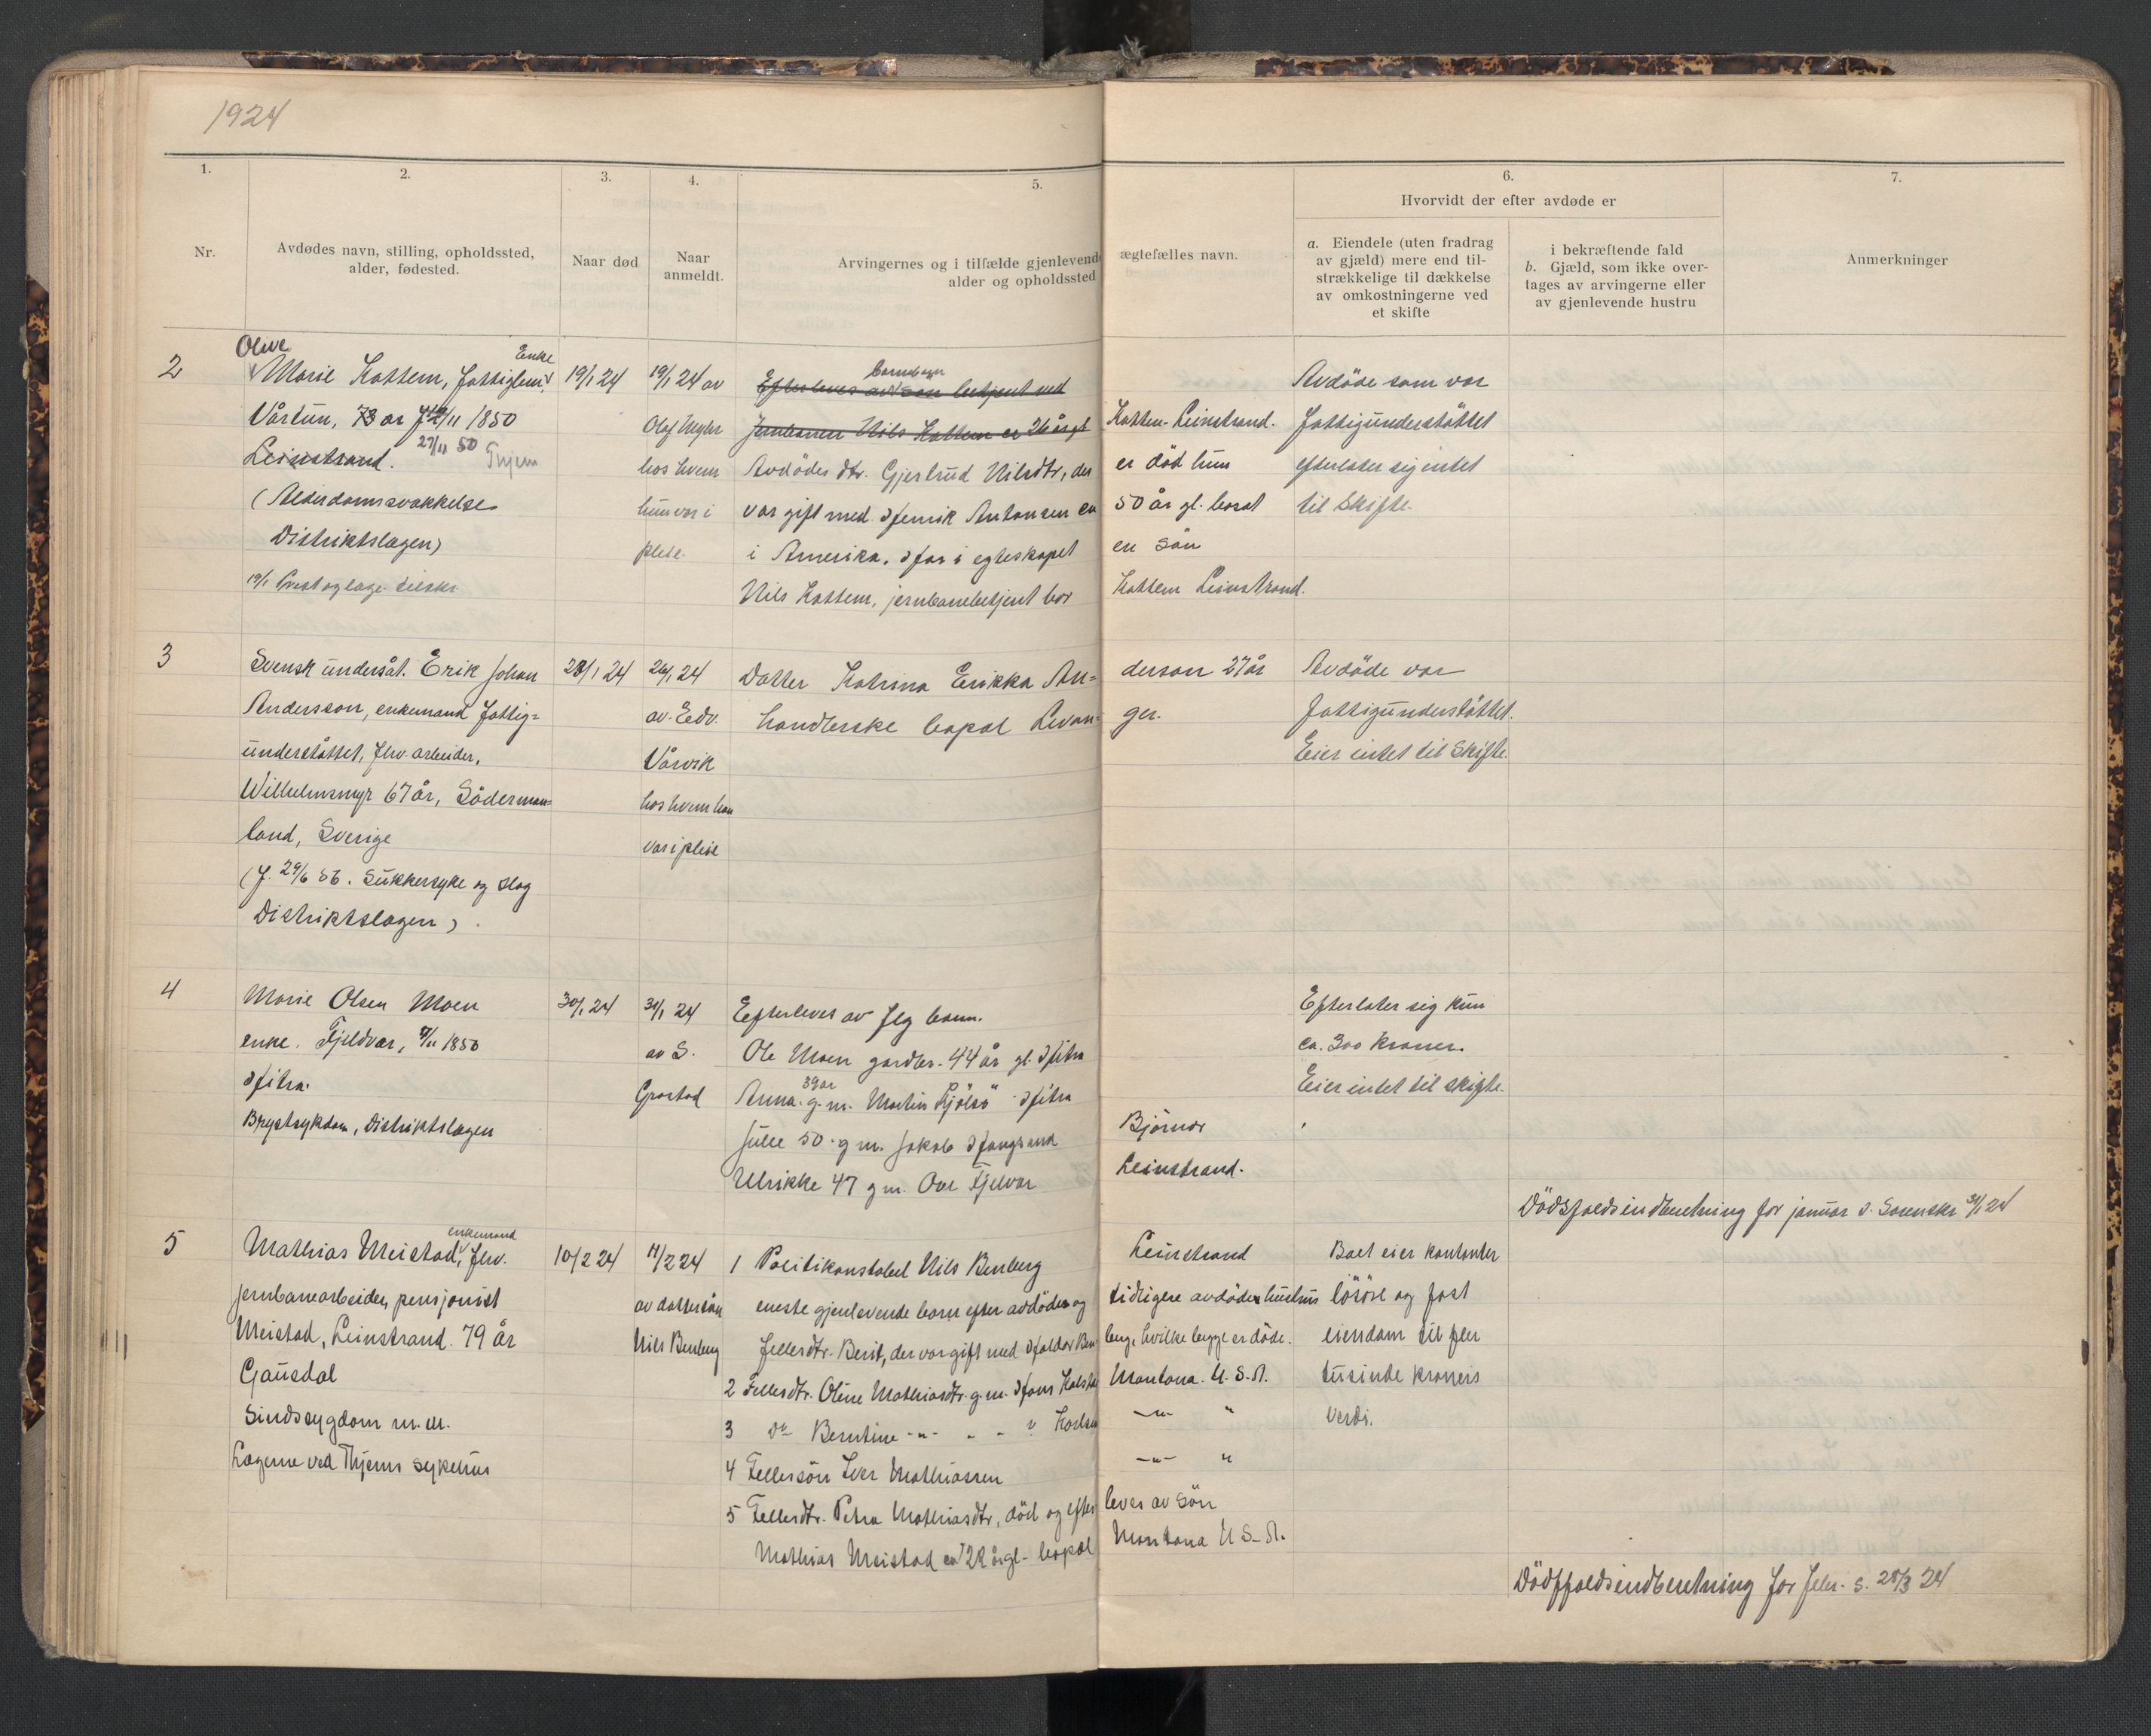 1924
1. 2. 3. 4. 5. 6. 7.
Nr.
Avdødes navn, stilling, opholdssted,
alder, fødested.
Naar død
Naar
anmeldt.
Arvingernes og i tilfælde gjenlevende ægtefælles navn.
alder og opholdssted
Hvorvidt der efter avdøde er
a. Eiendele (uten fradrag
av gjæld) mere end til-
strækkelige til dækkelse
av omkostningerne ved
et skifte
i bekræftende fald
b. Gjæld, som ikke over-
tages av arvingerne eller
av gjenlevende hustru
Anmerkninger
2
Olive
Enke
Marie Kattem, fattiglem,
Vårtun, 73 år f 12/11 1850
Leinstrand. 27/11 50
(Alderdomssvakkelse
Distriktslægen)
19/1
19/1 24
19/1 24 av
Olaf
hos hvem
hun var i
pleie.
barnebarn
Efterleves av søn betjent ved
Jernbanen Nils Kattem ca 26 år gl Kattem - Leinstrand.
Avdødes dtr. Gjertrud Nilsdtr, der er död hun
var gift med Henrik Antonsen ca 50 år gl. bosat
i Amerika. Har i egteskapet en sön
Nils Kattem, jernbanebetjent bor Kattem Leinstrand.
Avdöde som var
fattigunderstöttet
efterlater sig intet
til Skifte.
3
Svensk undersåt. Erik Johan
Andersson, enkemand fattig=
understöttet, fhv. arbeider,
Wilhelmsmyr 67 år, Söderman=
land, Sverige
(f. 29/6 56. Sukkersyke og slag
Distriktslægen).
28/1 24
26/1 24
av Edv.
Vårvik
hos hvem han
var i pleie
Datter Katrina Erikka An= derson 27 år
handlerske bopæl Levan= ger.
Avdöde var
fattigunderstöttet.
Eier intet til Skifte.
4
Marie Olsen Moen
enke. Fjeldvær, 1850
Hitra.
Brystsykdom, Distriktslægen
30/1 24
31/1 24
av S.
Grostad
Efterleves av flg barn.
Ole Moen gardbr. 44 år gl. Hitra
39 år
Anna g. m. Martin Kjölsö Hitra
Julie 50 g m. Jakob Haugsand Björnör
Ulrikke 47 g m. Ove Fjelvær Leinstrand.
Efterlater sig kun
ca. 300 kroner.
Eier intet til skifte.
Dödsfaldsindberetning for januar s. Sorenskr 31/1 24
5
enkemand
Mathias Meistad, fhv.
jernbanearbeider, pensjonist
Meistad, Leinstrand. 79 år
Gausdal
Sindssygdom m. m.
Lægerne ved Thjems sykehus
10/2 24
11/2 24
av dattersön
Nils Benberg
1 Politikonstabel Nils Benberg Leinstrand
eneste gjenlevende barn efter avdödes og tidligere avdöde hustrus
fellesdtr. Berit, der var gift med Haldor Ben- berg, hvilke begge er döde.
2 Fellesdtr. Oline Mathiasdtr. g. m. Hans Montana. U. S. A.
3 Do Berntine -"- - - -"- "
4 Fellessön Iver Mathiassen -"- "
5 Fellesdtr. Petra Mathiasdtr, död og efter leves av sön
Mathias Meistad ca 22 årgl- bopæl Montana U. S. A.
Boet eier kontanter
lösöre og fast
eiendom til fler
tusinde kroners
verdi.
Dödsfaldsindberetning for febr. s. 28/3 24